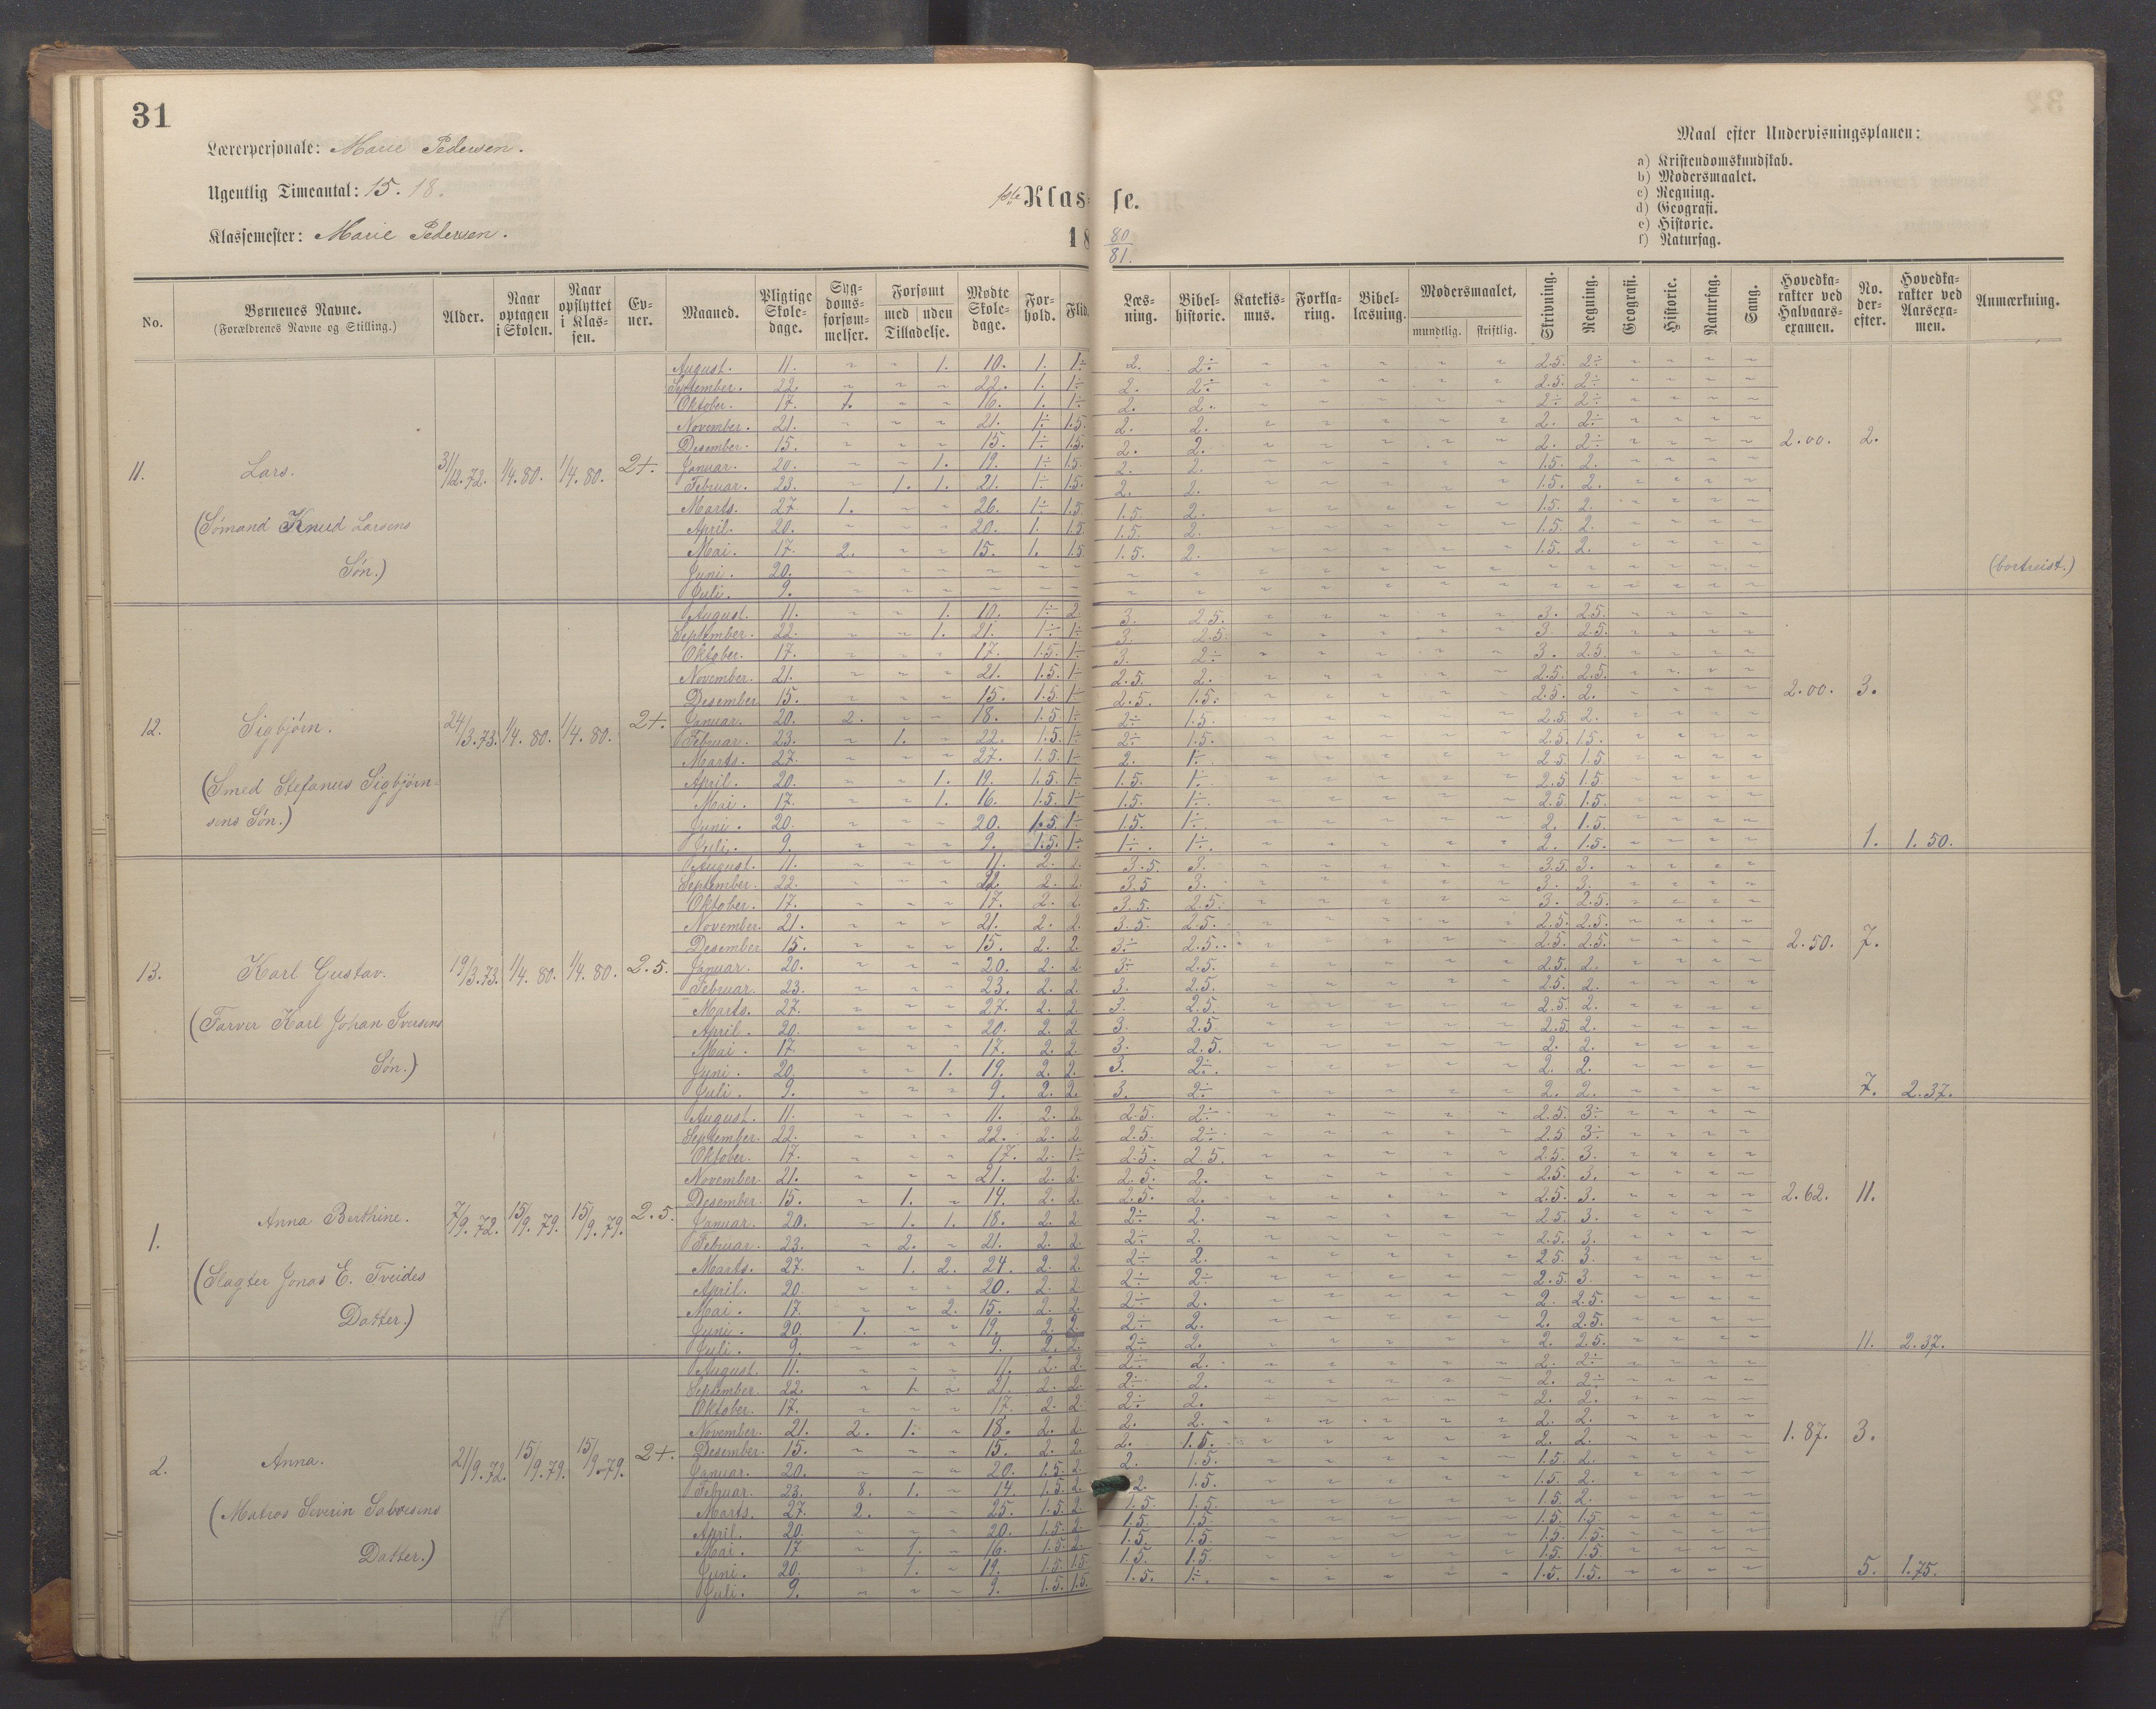 31
Lærerpersonale: Marie Pedersen.
Ugentlig Timeantal: 15. 18.
Klassemester: Marie Pedersen.
1ste Klasse.
18 80/81.
Maal efter Undervisningsplanen:
a) Kristendomskundskab.
b) Modersmaalet.
c) Regning.
d) Geografi.
e) Historie.
f) Naturfag.
No. Børnenes Navne. (Forældrenes Navne og Stilling.) Alder. Naar optagen i Skolen. Naar opflyttet i Klassen. Evner. Maaned. Pligtige Skoledage. Sygdomsforsømmelser. Forsømt med uden Tilladelse. Mødte Skoledage. Forhold. Flid. Læsning. Bibelhistorie. Katekismus. Forklaring. Bibellæsning. Modersmaalet, mundtlig. skriftlig. Skrivning. Regning. Geografi. Historie. Naturfag. Sang. Hovedkarakter ved Halvaarsexamen. No. derefter. Hovedkarakter ved Aarsexamen. Anmærkning.
August. 11. ~ ~ 1. 10. 1. 1÷ 2. 2÷ ~ ~ ~ ~ ~ 2.5. 2÷ ~ ~ ~ ~
September. 22. ~ ~ ~ 22. 1. 1÷ 2. 2÷ ~ ~ ~ ~ ~ 2.5. 2÷ ~ ~ ~ ~
Oktober. 17. 1. ~ ~ 16. 1. 1÷ 2. 2. ~ ~ ~ ~ ~ 2÷ 2÷ ~ ~ ~ ~
November. 21. ~ ~ ~ 21. 1÷ 1.5. 2. 2. ~ ~ ~ ~ ~ 2. 2÷ ~ ~ ~ ~
Desember. 15. ~ ~ ~ 15. 1÷ 1.5. 2. 2. ~ ~ ~ ~ ~ 2. 2÷ ~ ~ ~ ~ 2.00. 2.
11. Lars. 31/12.72. 1/4.80. 1/4.80. 2+. Januar. 20. ~ ~ 1. 19. 1÷ 1.5. 2. 2. ~ ~ ~ ~ ~ 1.5. 2. ~ ~ ~ ~
Februar. 23. ~ 1. 1. 21. 1÷ 1.5. 2. 2. ~ ~ ~ ~ ~ 1.5. 2. ~ ~ ~ ~
Marts. 27 1. ~ ~ 26. 1÷ 1.5. 1.5. 2. ~ ~ ~ ~ ~ 1.5. 2. ~ ~ ~ ~
(Sömand Knud Larsens April. 20. ~ ~ ~ 20. 1. 1.5. 1.5. 2. ~ ~ ~ ~ ~ 1.5. 2. ~ ~ ~ ~
Mai. 17. 2. ~ ~ 15. 1. 1.5 1.5. 2. ~ ~ ~ ~ ~ 1.5. 2. ~ ~ ~ ~
Søn.) Juni. 20. ~ ~ ~ ~ ~ ~ ~ ~ ~ ~ ~ ~ ~ ~ ~ ~ ~ ~ ~ (bortreist.)
Juli. 9. ~ ~ ~ ~ ~ ~ ~ ~ ~ ~ ~ ~ ~ ~ ~ ~ ~ ~ ~
August. 11. ~ ~ 1. 10. 1÷ 2. 3. 2.5. ~ ~ ~ ~ ~ 3. 2.5. ~ ~ ~ ~
September. 22. ~ ~ 1. 21. 1÷ 1÷ 3. 2.5. ~ ~ ~ ~ ~ 3. 2.5. ~ ~ ~ ~
Oktober. 17. ~ ~ ~ 17. 1.5. 1÷ 3. 2÷ ~ ~ ~ ~ ~ 3. 2.5. ~ ~ ~ ~
November. 21. ~ ~ ~ 21. 1.5. 1÷ 2.5. 2. ~ ~ ~ ~ ~ 2.5. 2.5. ~ ~ ~ ~
Desember 15. ~ ~ ~ 15. 1.5. 1÷ 2.5. 1.5. ~ ~ ~ ~ ~ 2.5. 2. ~ ~ ~ ~ 2.00. 3.
12. Sigbjörn. 24/3.73. 1/4.80. 1/4.80. 2+. Januar. 20. 2. ~ ~ 18. 1.5. 1÷ 2÷ 1.5. ~ ~ ~ ~ ~ 2.5. 2. ~ ~ ~ ~
Februar. 23. ~ 1. ~ 22. 1.5. 1÷ 2÷ 1.5. ~ ~ ~ ~ ~ 2.5. 1.5. ~ ~ ~ ~
Marts. 27. ~ ~ ~ 27. 1.5. 1÷ 2. 1÷ ~ ~ ~ ~ ~ 2.5 1.5 ~ ~ ~ ~
(Smed Stefanus Sigbjörn- April. 20. ~ ~ 1. 19. 1.5. 1÷ 1.5. 1÷ ~ ~ ~ ~ ~ 2.5 1.5 ~ ~ ~ ~
Mai. 17. ~ ~ 1. 16. 1.5. 1÷ 1.5. 1÷ ~ ~ ~ ~ ~ 2.5. 1.5. ~ ~ ~ ~
sens Søn.) Juni. 20. ~ ~ ~ 20. 1.5 1÷ 1.5. 1÷ ~ ~ ~ ~ ~ 2. 1.5. ~ ~ ~ ~
Juli. 9. ~ ~ ~ 9. 1.5. 1÷ 1÷. 1÷. ~ ~ ~ ~ ~ 2. 1.5. ~ ~ ~ ~ 1. 1.50.
August. 11. ~ ~ ~ 11. 2. 2. 3.5. 3. ~ ~ ~ ~ ~ 3.5. 3. ~ ~ ~ ~
September. 22. ~ ~ ~ 22. 2. 2. 3.5 3. ~ ~ ~ ~ ~ 3. 3. ~ ~ ~ ~
Oktober. 17. ~ ~ ~ 17. 2. 2. 3.5. 2.5. ~ ~ ~ ~ ~ 3. 2.5. ~ ~ ~ ~
November. 21. ~ ~ ~ 21. 2. 2. 3.5. 2.5. ~ ~ ~ ~ ~ 2.5. 2.5. ~ ~ ~ ~
Desember 15. ~ ~ ~ 15. 2. 2. 3÷ 2.5. ~ ~ ~ ~ ~ 2.5. 2.5. ~ ~ ~ ~ 2.50. 7.
13. Karl Gustav. 19/3.73. 1/4.80. 1/4.80. 2.5. Januar. 20. ~ ~ ~ 20. 2. 2. 3÷ 2.5. ~ ~ ~ ~ ~ 2.5. 2. ~ ~ ~ ~
Februar. 23. ~ ~ ~ 23. 2. 2. 3. 2.5. ~ ~ ~ ~ ~ 2.5. 2. ~ ~ ~ ~
Marts. 27. ~ ~ ~ 27. 2. 2 3. 2.5. ~ ~ ~ ~ ~ 2.5 2. ~ ~ ~ ~
(Farver Karl Johan Iversens April. 20. ~ ~ ~ 20. 2. 2 3. 2.5 ~ ~ ~ ~ ~ 2.5. 2. ~ ~ ~ ~
Mai. 17. ~ ~ ~ 17. 2. 2. 3. 2.5. ~ ~ ~ ~ ~ 2. 2. ~ ~ ~ ~
Søn.) Juni. 20. ~ ~ 1. 19. 2. 2. 3. 2÷. ~ ~ ~ ~ ~ 2. 2. ~ ~ ~ ~
Juli. 9. ~ ~ ~ 9. 2. 2. 3. 2÷ ~ ~ ~ ~ ~ 2. 2. ~ ~ ~ ~ 7. 2.37.
August. 11. ~ ~ ~ 11. 2. 2. 2.5. 2÷ ~ ~ ~ ~ ~ 2.5. 3÷ ~ ~ ~ ~
September. 22. ~ ~ ~ 22. 2. 2 2.5. 2÷ ~ ~ ~ ~ ~ 2.5 3÷ ~ ~ ~ ~
Oktober. 17. ~ ~ ~ 17. 2. 1÷ 2.5. 2.5. ~ ~ ~ ~ ~ 2.5. 3. ~ ~ ~ ~
November. 21. ~ ~ ~ 21. 2. 2. 2.5. 2. ~ ~ ~ ~ ~ 2.5 3. ~ ~ ~ ~
Desember. 15. ~ 1. ~ 14. 2. 2. 2.5. 2. ~ ~ ~ ~ ~ 2.5. 3. ~ ~ ~ ~ 2.62. 11.
1. Anna Berthine. 7/9.72. 15/9.79. 15/9.79. 2.5. Januar. 20. ~ 1. 1. 18. 2. 2 2÷ 2. ~ ~ ~ ~ ~ 2.5 3. ~ ~ ~ ~
Februar. 23. ~ 2. ~ 21. 2. 2. 2÷ 2. ~ ~ ~ ~ ~ 2.5. 3. ~ ~ ~ ~
(Slagter Jonas E. Tveides Marts. 27. ~ 1. 2. 24. 2. 2. 2÷ 2. ~ ~ ~ ~ ~ 2.5 3. ~ ~ ~ ~
April. 20. ~ ~ ~ 20. 2. 2 2÷ 2÷ ~ ~ ~ ~ ~ 2.5. 3. ~ ~ ~ ~
Datter.) Mai. 17. ~ ~ 2. 15. 2. 2. 2÷ 2. ~ ~ ~ ~ ~ 2. 2.5. ~ ~ ~ ~
Juni. 20. 1. ~ ~ 19. 2. 2. 2÷ 2. ~ ~ ~ ~ ~ 2. 2.5. ~ ~ ~ ~
Juli. 9. ~ ~ ~ 9. 2. 2. 2÷ 2. ~ ~ ~ ~ ~ 2. 2.5. ~ ~ ~ ~ 11. 2.37.
August. 11. ~ ~ ~ 11. 2. 2. 2÷ 2. ~ ~ ~ ~ ~ 2. 2÷ ~ ~ ~ ~
September. 22. ~ 1. ~ 21. 2. 2. 2÷ 2. ~ ~ ~ ~ ~ 2. 2÷ ~ ~ ~ ~
Oktober. 17. ~ ~ ~ 17. 2. 2. 2÷ 2. ~ ~ ~ ~ ~ 2. 2. ~ ~ ~ ~
November. 21. 2. 1. ~ 18. 2. 2. 2. 2. ~ ~ ~ ~ ~ 2. 2. ~ ~ ~ ~ 1.87. 3.
2. Anna. 21/9.72. 15/9.79. 15/9.79. 2+. Desember. 15. ~ ~ ~ 15. 2. 2. 2. 1.5. ~ ~ ~ ~ ~ 2. 2. ~ ~ ~ ~
Januar. 20. ~ ~ ~ 20. 1.5. 2. 2. 1.5. ~ ~ ~ ~ ~ 1.5. 2. ~ ~ ~ ~
Februar. 23. 8. 1. ~ 14. 1.5. 2. 2. 1.5. ~ ~ ~ ~ ~ 1.5. 2. ~ ~ ~ ~
(Matros Severin Marts. 27. 2. ~ ~ 25. 1.5. 2. 1.5. 1.5. ~ ~ ~ ~ ~ 1.5. 2. ~ ~ ~ ~
April. 20. ~ ~ ~ 20. 1.5. 2. 1.5. 1.5. ~ ~ ~ ~ ~ 1.5. 1.5. ~ ~ ~ ~
Datter.) Mai. 17 ~ 1. ~ 16. 1.5. 2. 1.5. 1.5. ~ ~ ~ ~ ~ 1.5. 1.5. ~ ~ ~ ~
Juni. 20. ~ 1. ~ 19. 1.5. 1.5 1.5. 1.5. ~ ~ ~ ~ ~ 1.5. 1.5. ~ ~ ~ ~
Juli. 9. ~ ~ ~ 9. 1.5. 1.5. 1.5. 1÷. ~ ~ ~ ~ ~ 1.5. 1.5. ~ ~ ~ ~ 5. 1.75.